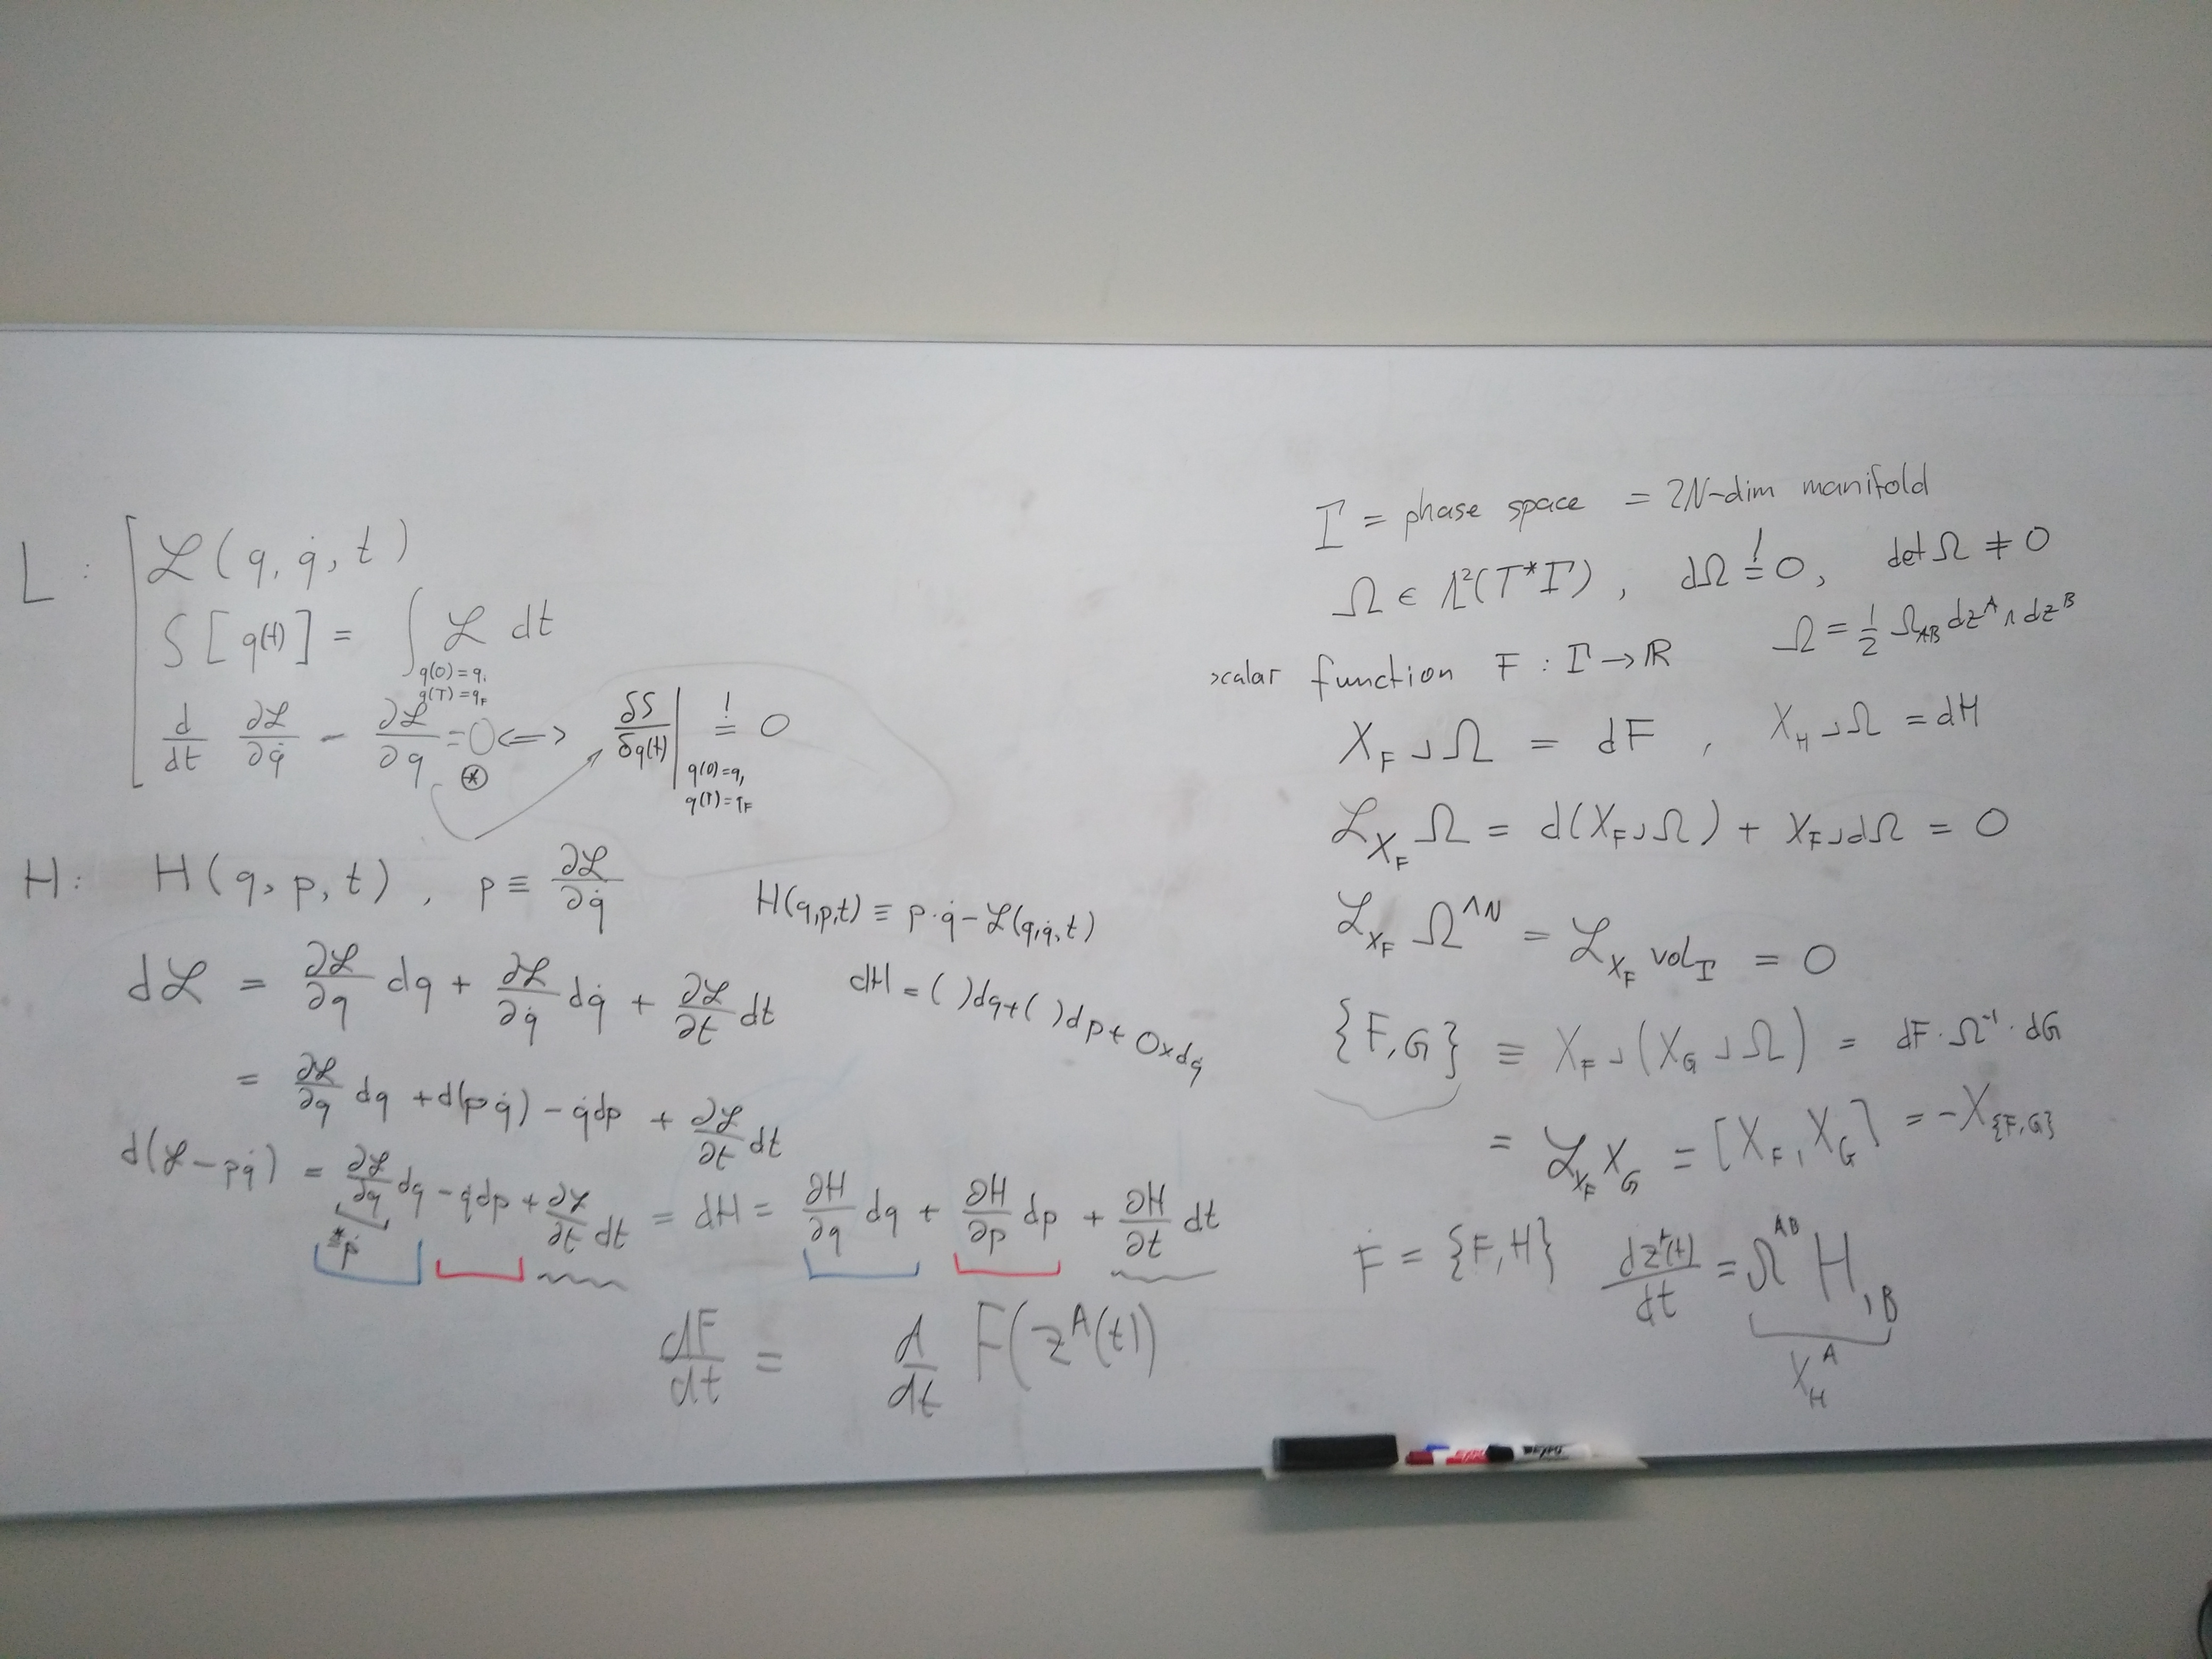 L : ℒ(q, q̇, t)
S[q(t)] = ∫ ℒ dt
q(0)=qᵢ
q(T)=q_F
d/dt ∂ℒ/∂q̇ − ∂ℒ/∂q = 0 <=> δS/δq(t) | =! 0
⊛
q(0)=qᵢ
q(T)=q_F
H: H(q, p, t) , p ≡ ∂ℒ/∂q̇
H(q,p,t) ≡ p·q̇ − ℒ(q,q̇,t)
dℒ = ∂ℒ/∂q dq + ∂ℒ/∂q̇ dq̇ + ∂ℒ/∂t dt
dH = ( )dq + ( )dp + 0×dq̇
= ∂ℒ/∂q dq + d(pq̇) − q̇dp + ∂ℒ/∂t dt
d(ℒ − pq̇) = ∂ℒ/∂q dq − q̇dp + ∂ℒ/∂t dt = dH = ∂H/∂q dq + ∂H/∂p dp + ∂H/∂t dt
*≡ ṗ
dF/dt = d/dt F(z^A(t))
Γ = phase space = 2N-dim manifold
Ω ∈ Λ²(T*Γ) , dΩ =! 0, det Ω ≠ 0
Ω = ½ Ω_AB dz^A ∧ dz^B
scalar function F : Γ → ℝ
X_F ⌟ Ω = dF , X_H ⌟ Ω = dH
ℒ_{X_F} Ω = d(X_F ⌟ Ω) + X_F ⌟ dΩ = 0
ℒ_{X_F} Ω^{∧N} = ℒ_{X_F} vol_Γ = 0
{F,G} ≡ X_F ⌟ (X_G ⌟ Ω) = dF · Ω⁻¹ · dG
= ℒ_{X_F} X_G = [X_F, X_G] = −X_{{F,G}}
Ḟ = {F,H} dz^A(t)/dt = Ω^{AB} H_{,B}
X_H^A
EXPO
EXPO